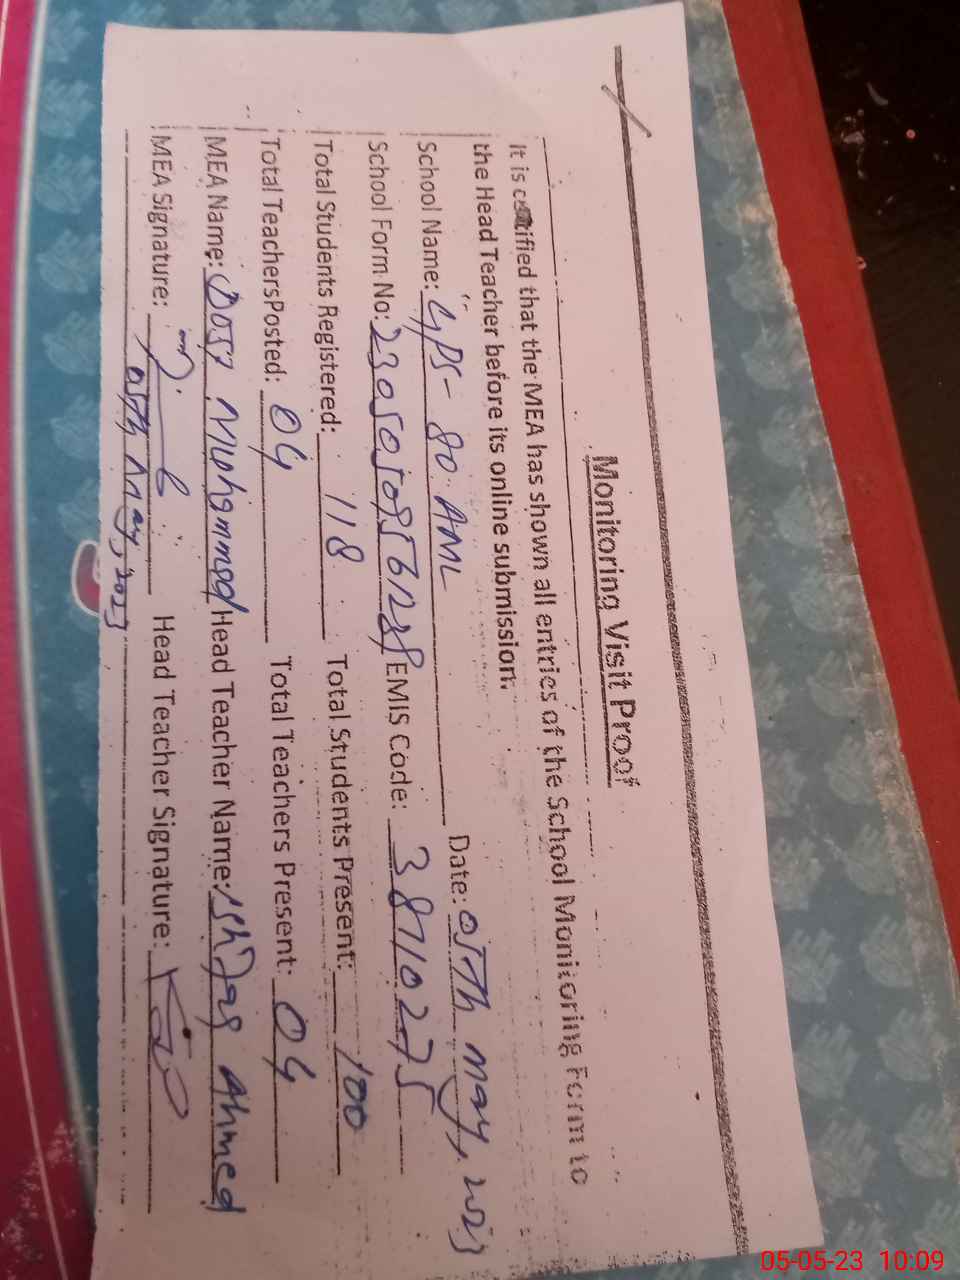 Monitoring Visit Proof
It is certified that the MEA has shown all entries of the School Monitoring Form to
the Head Teacher before its online submission.
School Name: GPS- 80 AML Date: 05th May, 2023
School Form No: EMIS Code: 38710275
Total Students Registered: 118 Total Students Present: 100
Total TeachersPosted: 04 Total Teachers Present: 04
MEA Name: Dost Mohammad Head Teacher Name: Ishfaq Ahmed
MEA Signature: Head Teacher Signature:
05th May, 2023
05-05-23 10:09